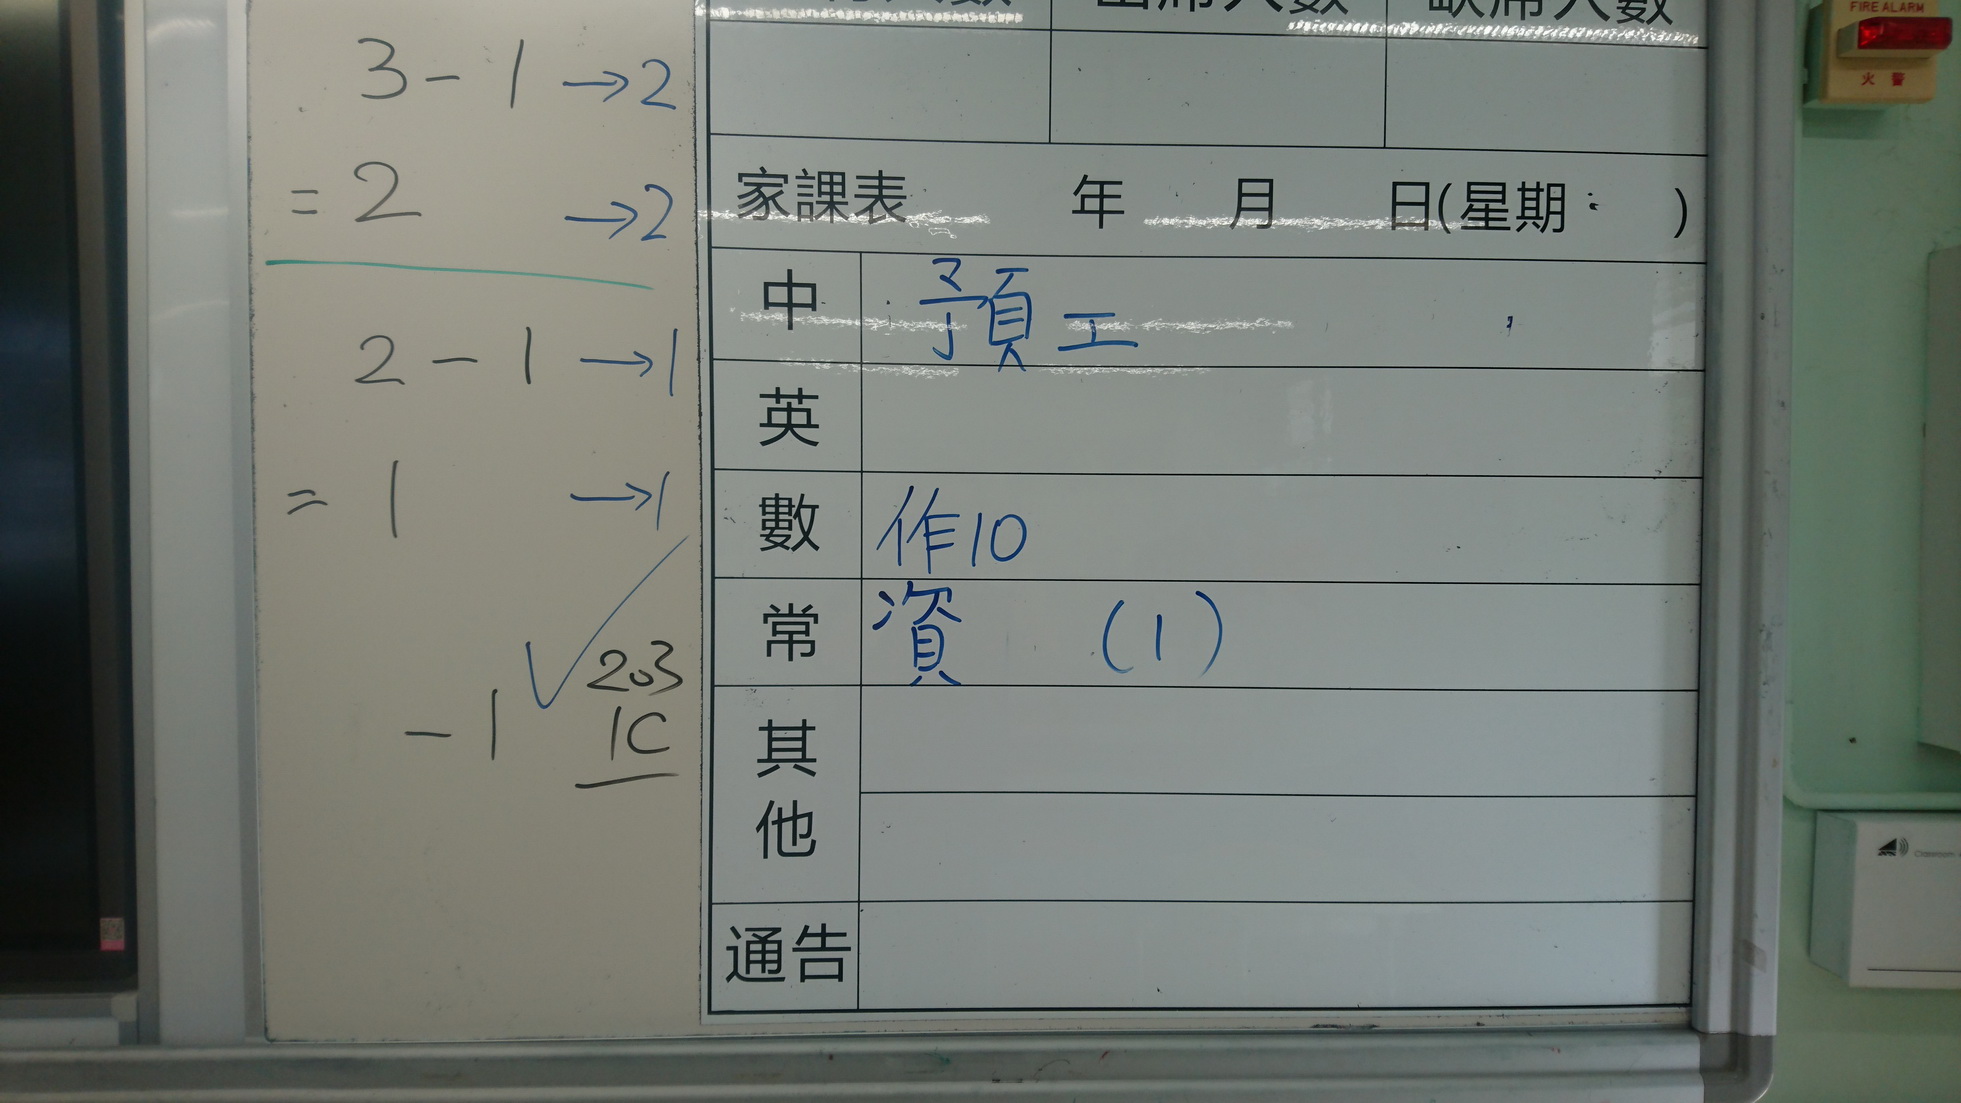 3 - 1 → 2
= 2 → 2
2 - 1 → 1
= 1 → 1
203
- 1
1C
出席人數
缺席人數
家課表 年 月 日(星期 )
中 預工
英
數 作10
常 資 (1)
其他
通告
FIRE ALARM
火警